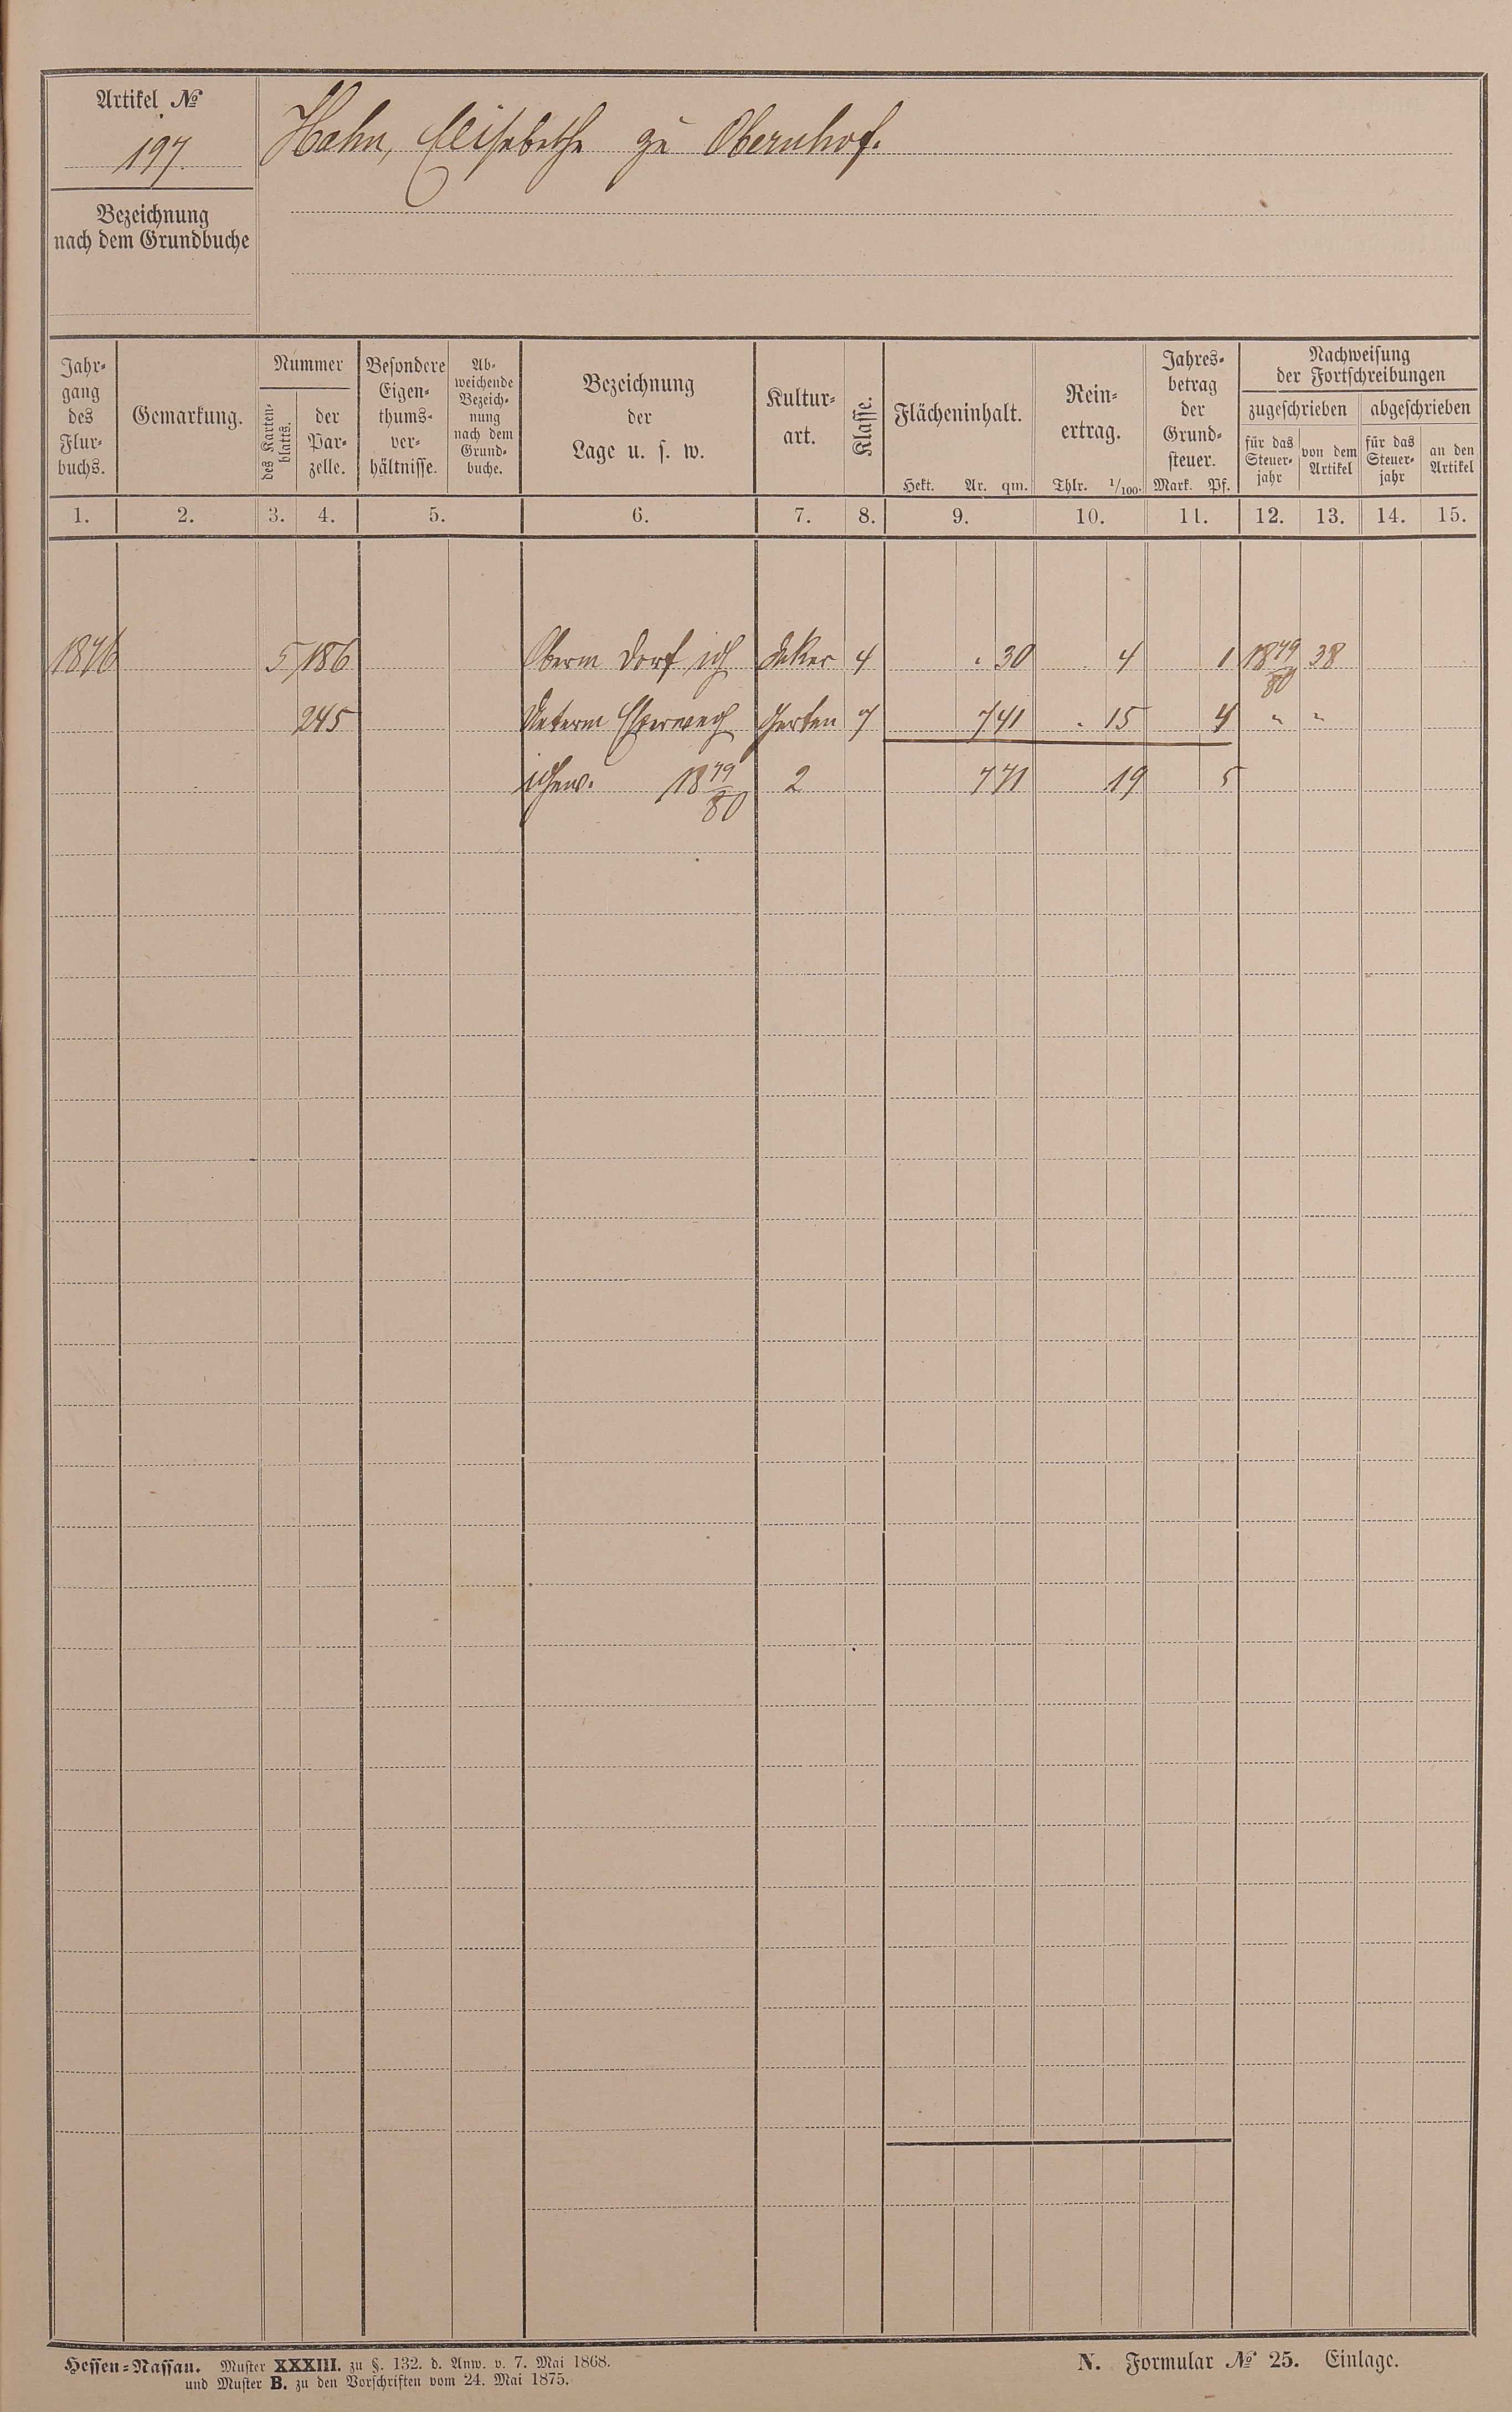 Artikel №
197.
Hahn, Elisabethe zu Obernhof.
Bezeichnung
nach dem Grundbuche
Jahr-
gang
des
Flur-
buchs.
Gemarkung.
Nummer
des Karten-
blatts.
der
Par-
zelle.
Besondere
Eigen-
thums-
ver-
hältnisse.
Ab-
weichende
Bezeich-
nung
nach dem
Grund-
buche.
Bezeichnung
der
Lage u. s. w.
Kultur-
art.
Klasse.
Flächeninhalt.
Hekt. Ar. qm.
Rein-
ertrag.
Thlr. 1/100.
Jahres-
betrag
der
Grund-
steuer.
Mark. Pf.
Nachweisung
der Fortschreibungen
zugeschrieben abgeschrieben
für das
Steuer-
jahr
von dem
Artikel
für das
Steuer-
jahr
an den
Artikel
1. 2. 3. 4. 5. 6. 7. 8. 9. 10. 11. 12. 13. 14. 15.
1876 5 186 Oberm Dorf Acker 4 30 4 1 1879/80 38
245 Unterm Garten 7 7 41 15 4 " "
1879/80 2 7 71 19 5
Hessen-Nassau. Muster XXXIII. zu §. 132. d. Anw. v. 7. Mai 1868.
und Muster B. zu den Vorschriften vom 24. Mai 1875.
N. Formular № 25. Einlage.